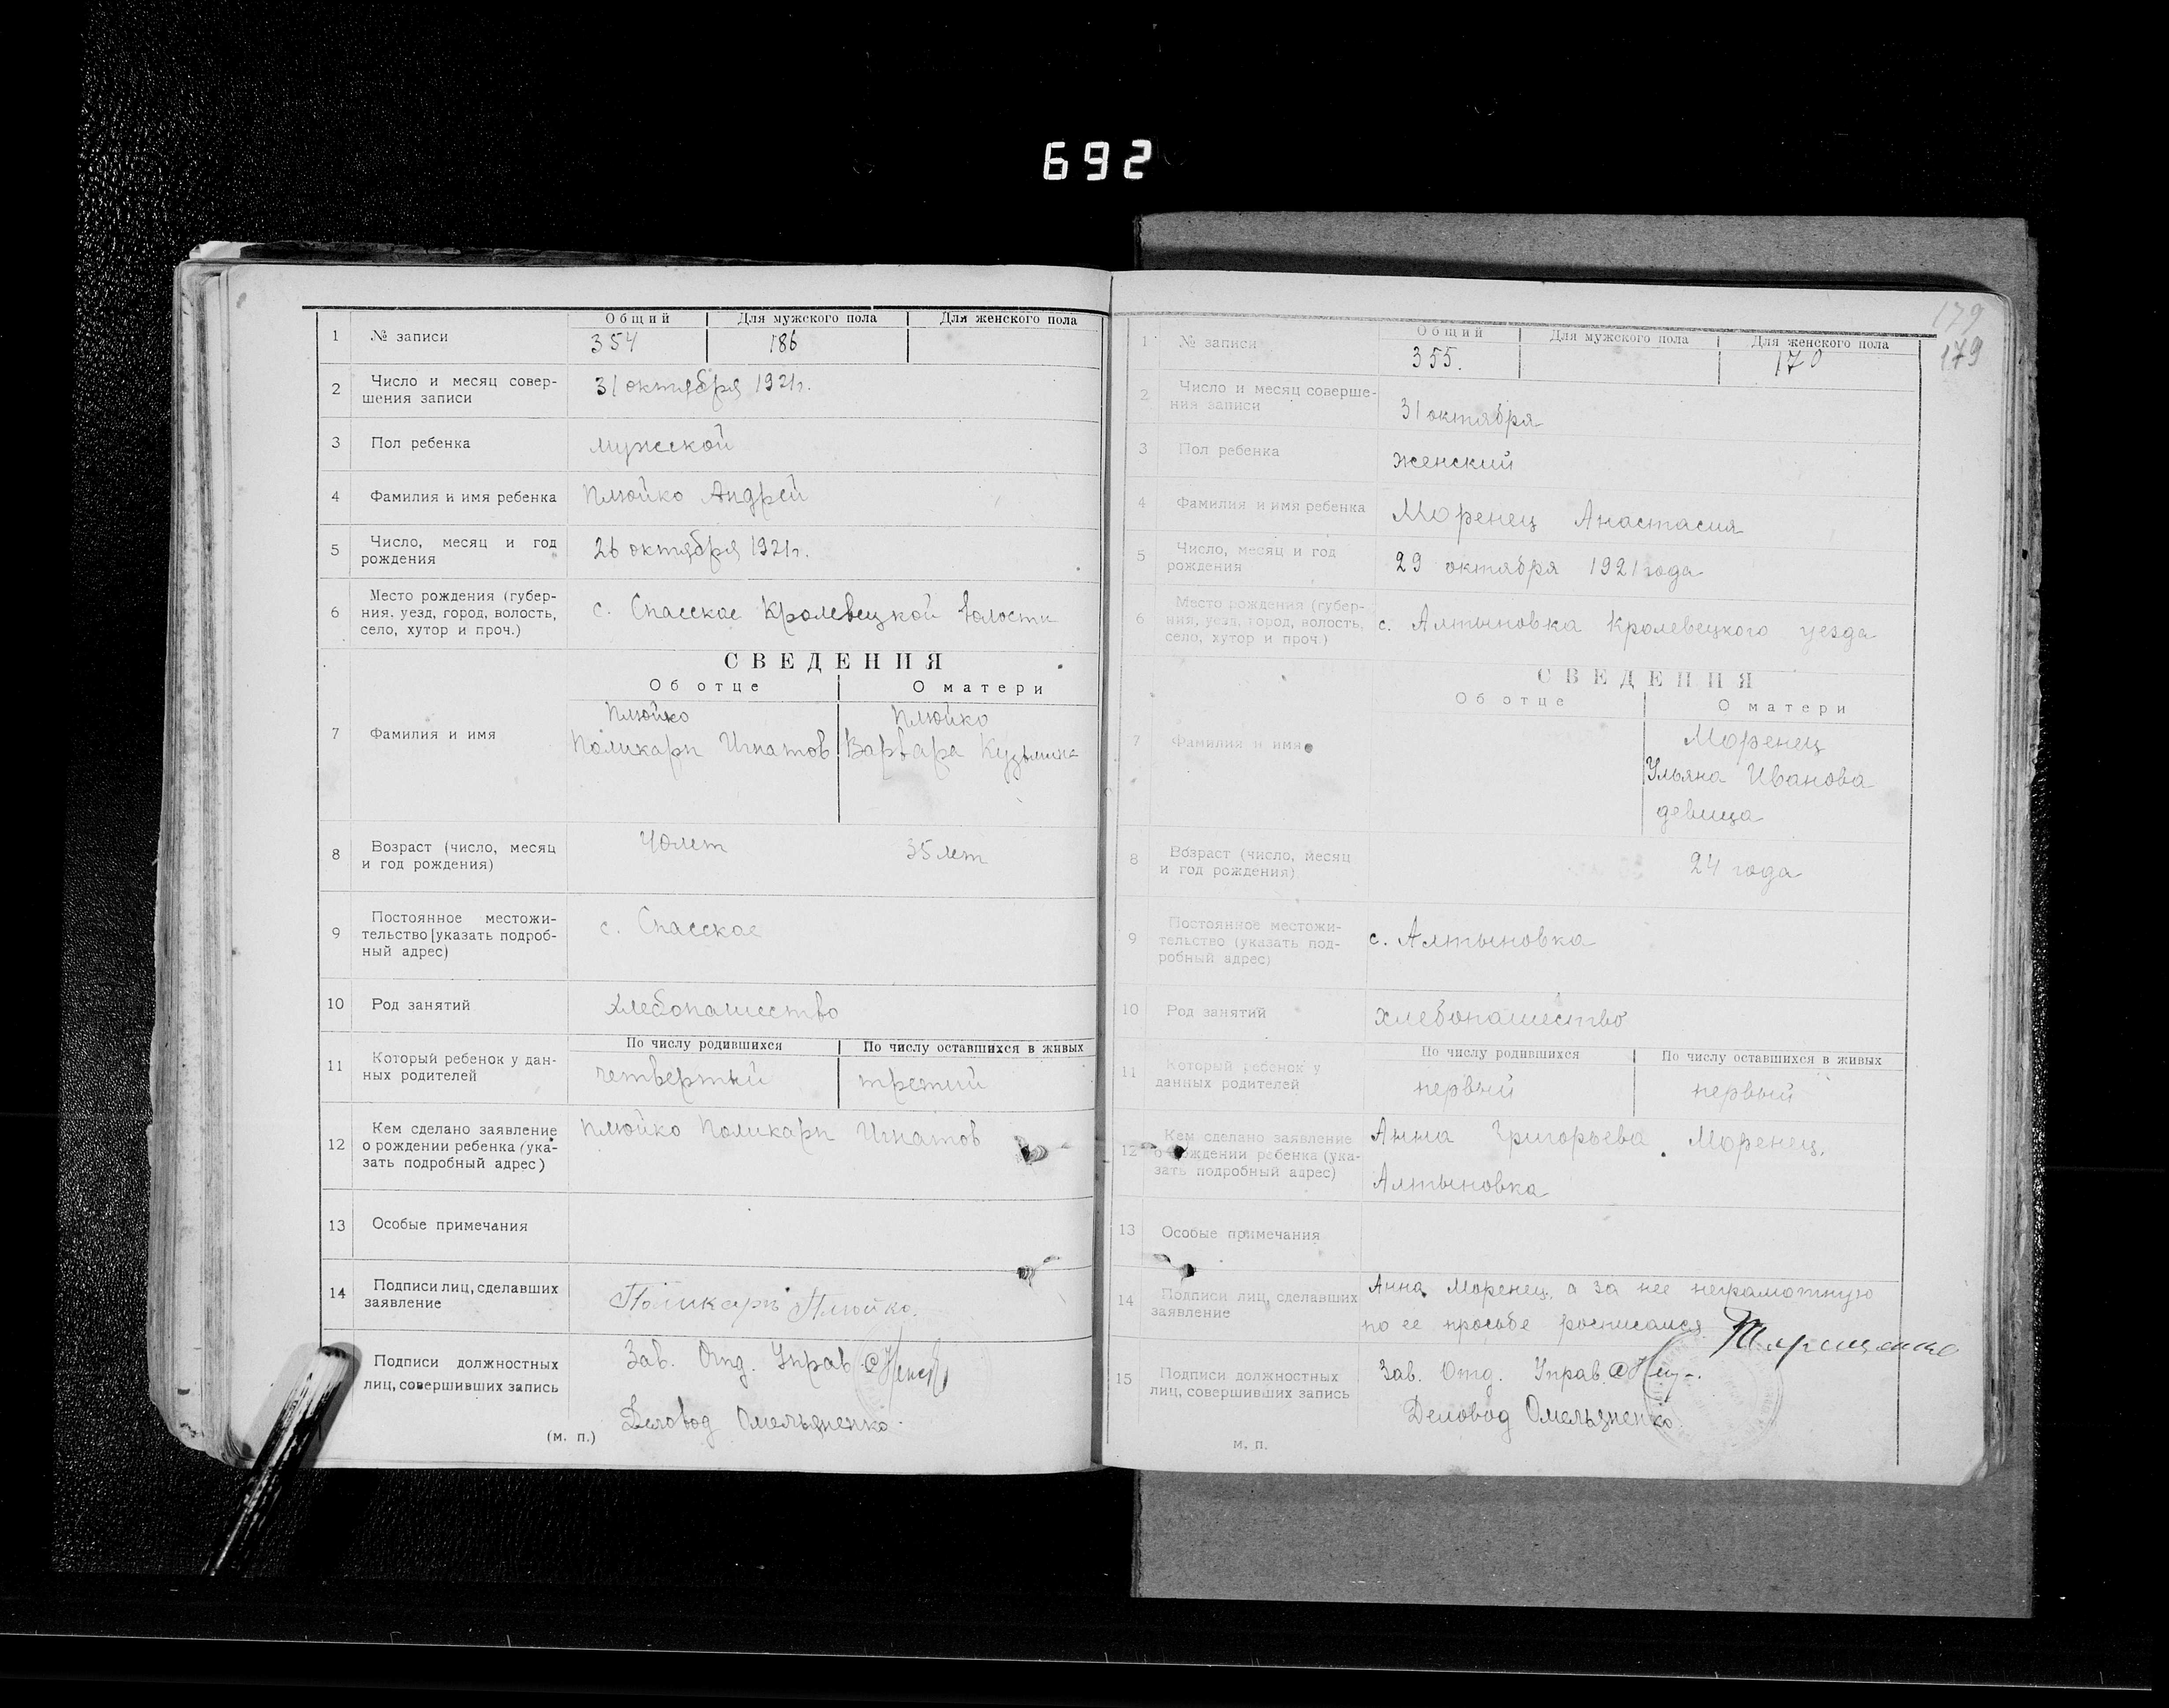 692
Общий Для мужского пола Для женского пола
1 № записи 354 186
2 Число и месяц совер-
шения записи 31 октября 1921г.
3 Пол ребенка мужской
4 Фамилия и имя ребенка Плюйко Андрей
5 Число, месяц и год
рождения 26 октября 1921г.
6 Место рождения (губер-
ния, уезд, город, волость,
село, хутор и проч.) с. Спасское Кролевецкой волости
СВЕДЕНИЯ
Об отце О матери
7 Фамилия и имя
Плюйко Плюйко
Поликарп Игнатов Варвара Кузьмина
8 Возраст (число, месяц
и год рождения) 40 лет 35 лет
9 Постоянное местожи-
тельство [указать подроб-
ный адрес) с. Спасское
10 Род занятий хлебопашество
По числу родившихся По числу оставшихся в живых
11 Который ребенок у дан-
ных родителей четвертый третий
12 Кем сделано заявление
о рождении ребенка (ука-
зать подробный адрес) Плюйко Поликарп Игнатов
13 Особые примечания
14 Подписи лиц, сделавших
заявление Поликарп Плюйко.
Подписи должностных
лиц, совершивших запись Зав. Отд. Управ.
Деловод Омельяненко.
(м. п.)
179
179
Общий Для мужского пола Для женского пола
1 № записи 355. 170
2 Число и месяц соверше-
ния записи 31 октября
3 Пол ребенка женский
4 Фамилия и имя ребенка Моренец Анастасия
5 Число, месяц и год
рождения 29 октября 1921 года
6 Место рождения (губер-
ния, уезд, город, волость,
село, хутор и проч.) с. Алтыновка Кролевецкого уезда
СВЕДЕНИЯ
Об отце О матери
7 Фамилия и имя
Моренец
Ульяна Иванова
девица
8 Возраст (число, месяц
и год рождения) 24 года
9 Постоянное местожи-
тельство (указать под-
робный адрес) с. Алтыновка
10 Род занятий хлебопашество
По числу родившихся По числу оставшихся в живых
11 Который ребенок у
данных родителей первый первый
12 Кем сделано заявление
о рождении ребенка (ука-
зать подробный адрес) Анна Григорьева Моренец,
Алтыновка
13 Особые примечания
14 Подписи лиц, сделавших
заявление Анна Моренец, а за нее неграмотную
по ее просьбе росписался
15 Подписи должностных
лиц, совершивших запись Зав. Отд. Управ.
Деловод Омельяненко.
м. п.